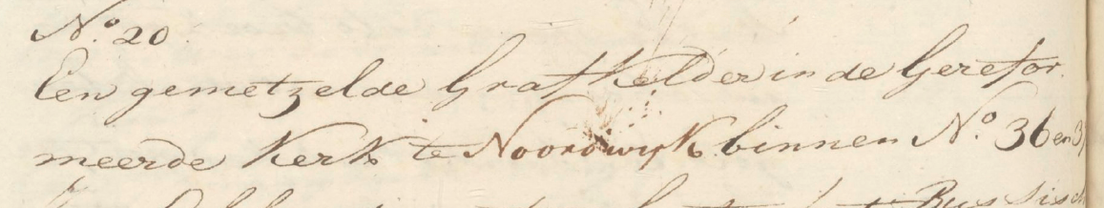 N.o 20.
Een gemetzelde Graf Kelder in de Gerefor
meerde Kerk te Noordwijk binnen N.o 36 en